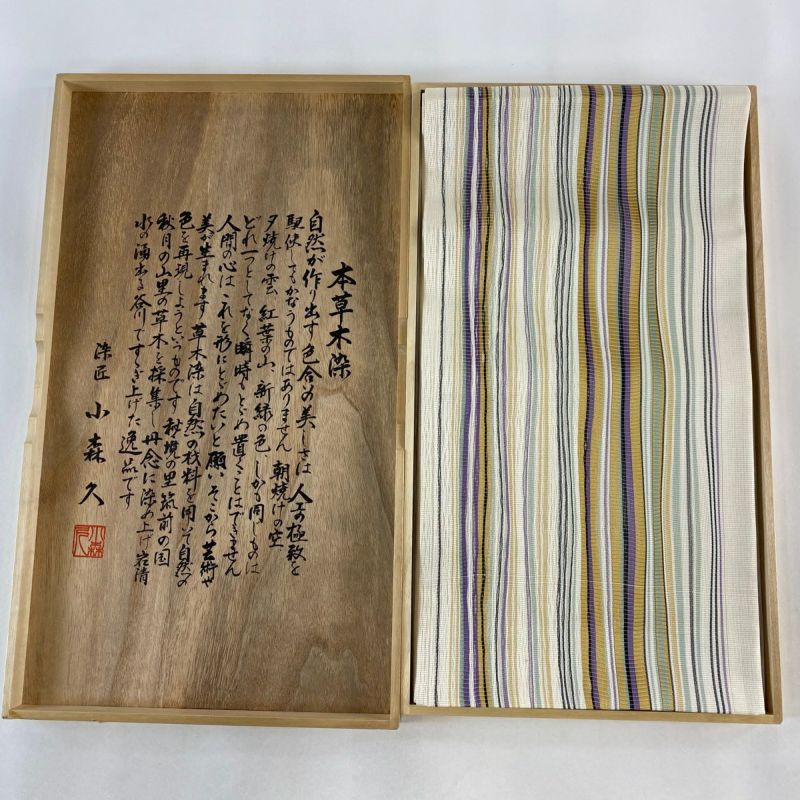 本草木染
自然が作り出す色合の美しさは 人工の極致を
駆使してもかなうものではありません 朝焼けの空
夕焼けの雲 紅葉の山、新緑の色 しかも同じものは
どれ一つとしてなく瞬時もとどめ置くことはできません
人間の心は これを形にとどめたいと願い そこから芸術や
美が生まれます 草木染は自然の材料を用いて自然の
色を再現しようというものです 秘境の里筑前の国
秋月の山里の草木を採集し丹念に染め上げ岩清
水の湧出る谷川ですすぎ上げた逸品です
染匠 小森久